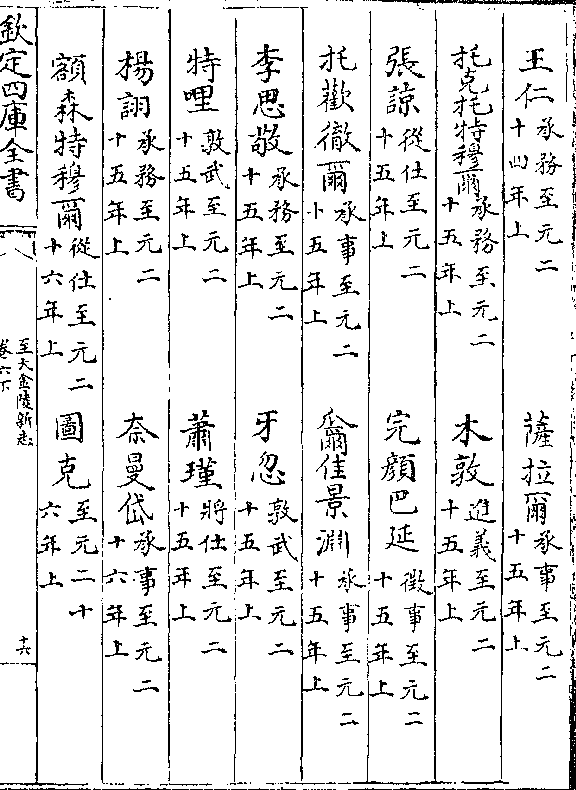 王仁承務至元二十四年上　薩拉爾承事至元二十五年上
托克托特穆爾承務至元二十五年上　木敦進義至元二十五年上
張諒從仕至元二十五年上　完顔巴延徵事至元二十五年上
托歡徹爾承事至元二十五年上　佳景淵承事至元二十五年上
李思敬承務至元二十五年上　牙忽敦武至元二十五年上
特哩敦武至元二十五年上　蕭瑾將仕至元二十五年上
楊詡承務至元二十五年上　奈曼岱承事至元二十六年上
額森特穆爾從仕至元二十六年上　圖克至元二十六年上
欽定四庫全書　至大金陵新志卷六下　十六